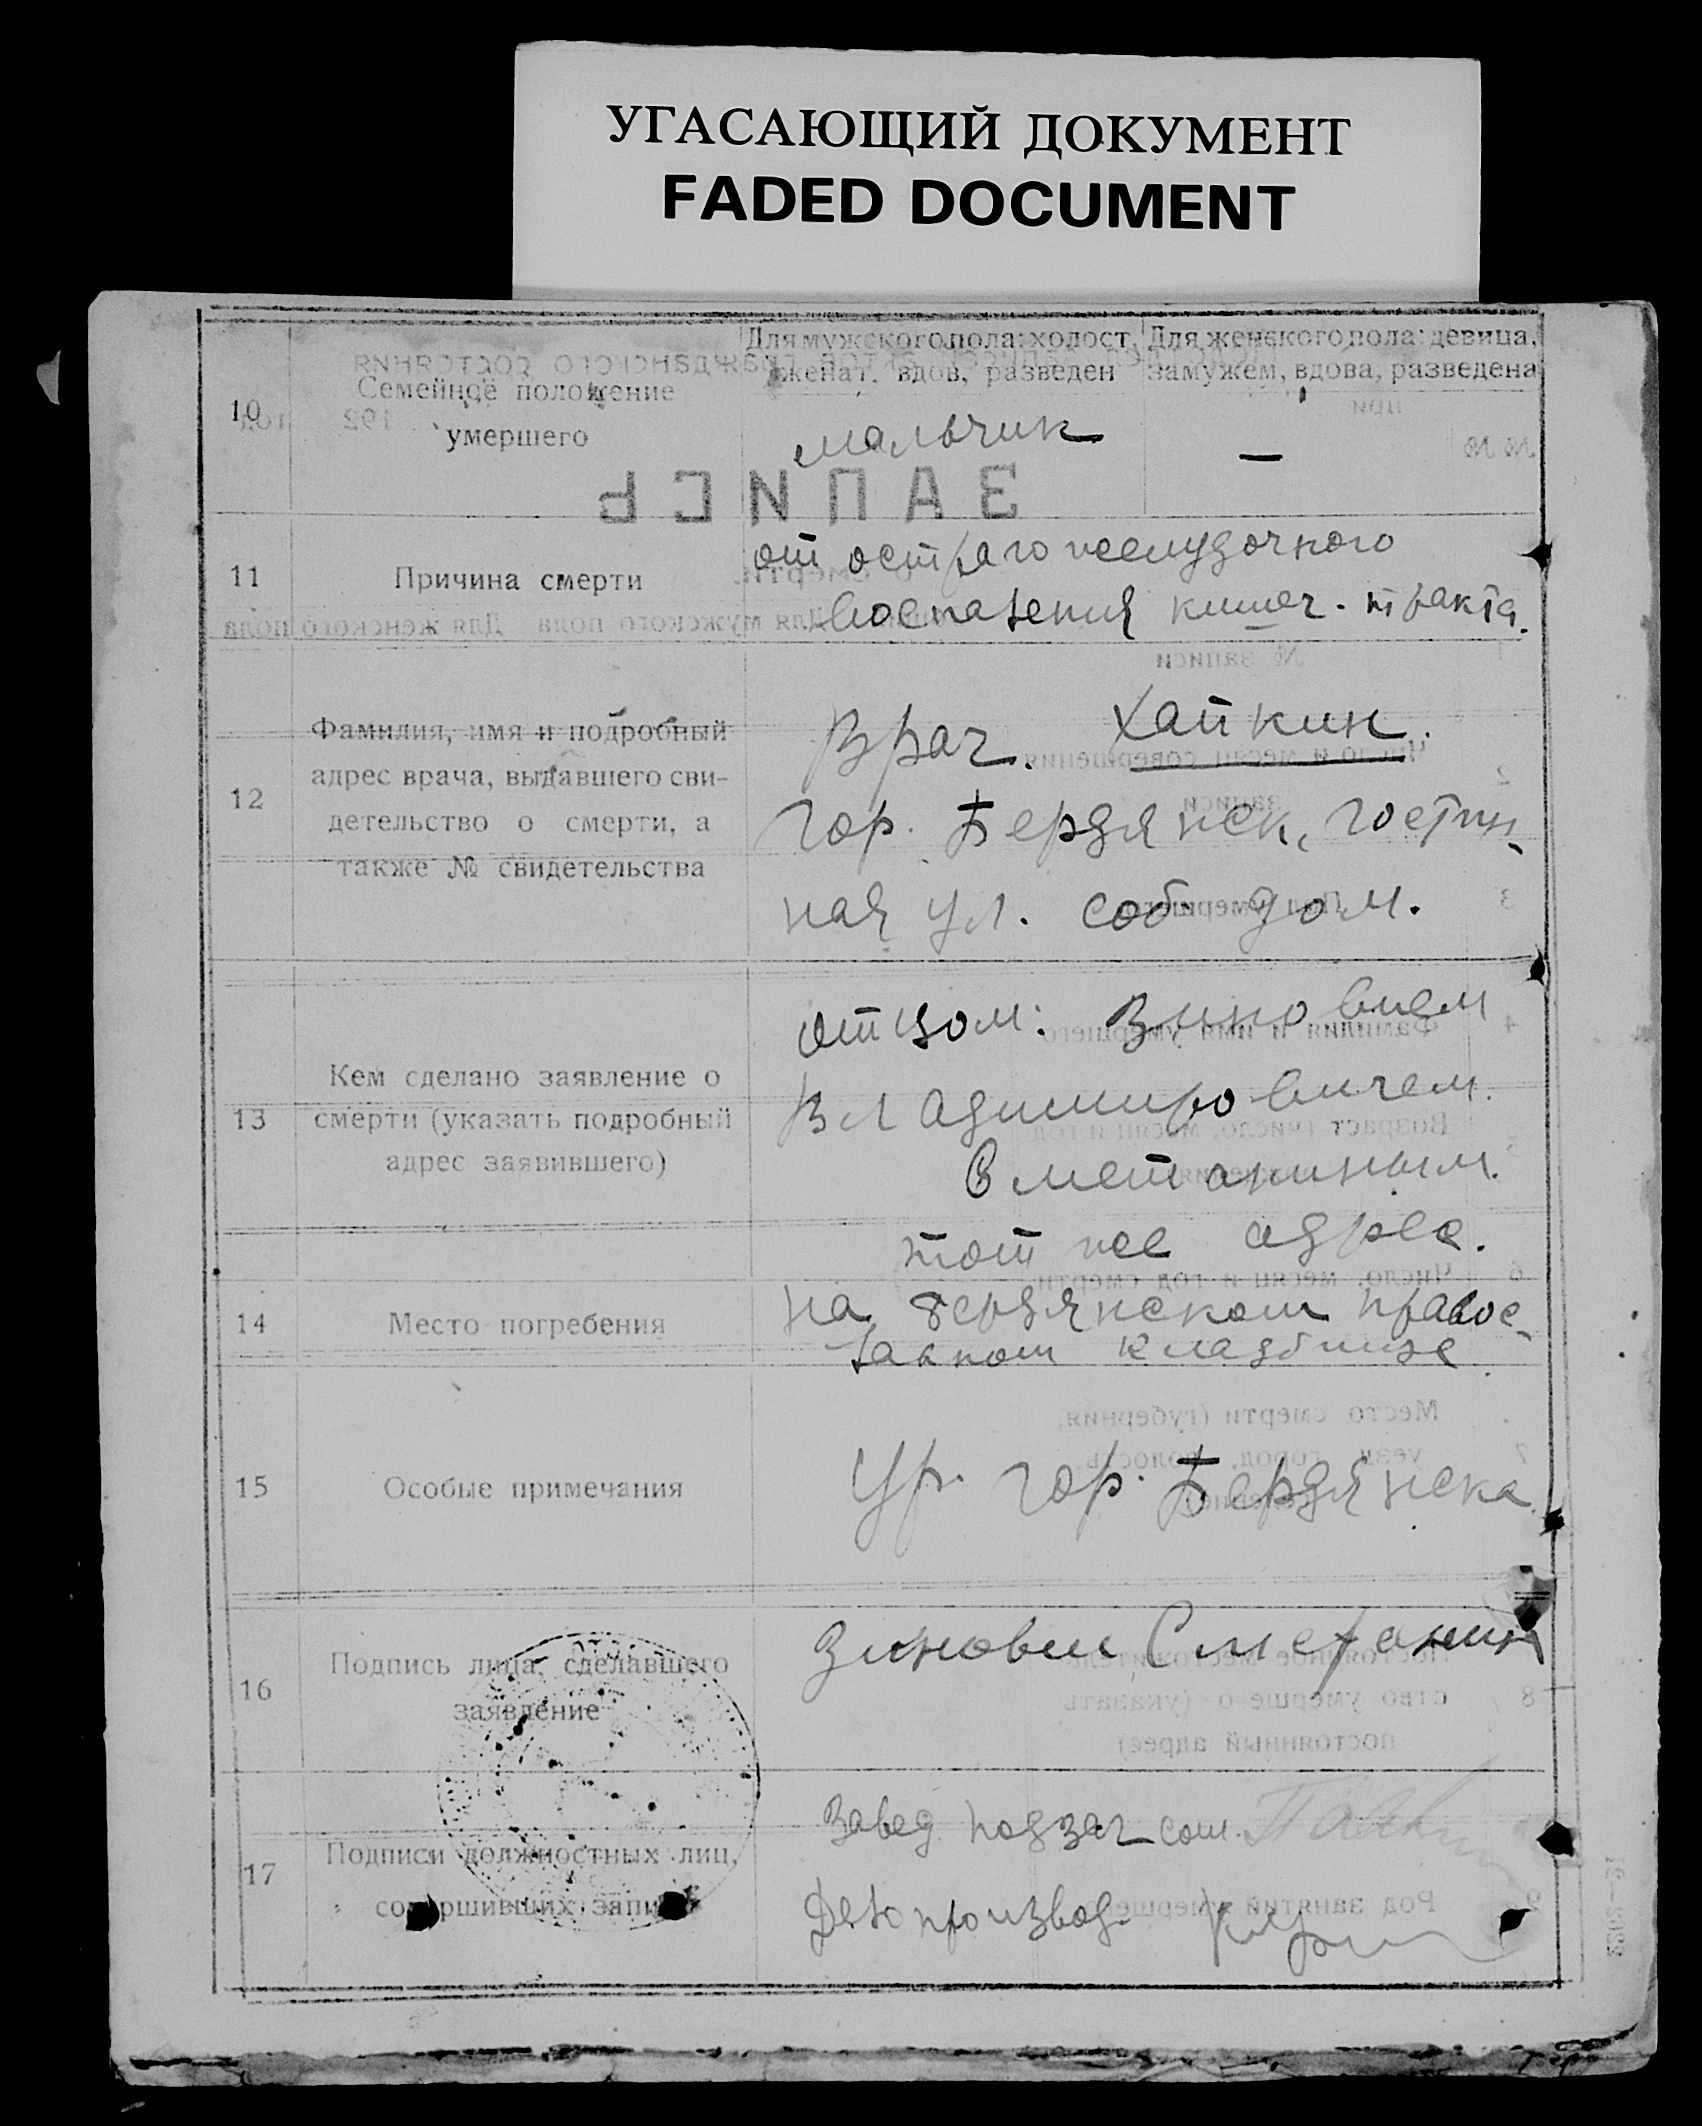 УГАСАЮЩИЙ ДОКУМЕНТ
FADED DOCUMENT
10
Семейное положение
умершего
Для мужского пола: холост,
женат, вдов, разведен
мальчик
Для женского пола: девица,
замужем, вдова, разведена
—
11
Причина смерти
от остраго желудочного
воспаления кишеч. тракта.
12
Фамилия, имя и подробный
адрес врача, выдавшего сви-
детельство о смерти, а
также № свидетельства
Врач. Хайкин.
гор. Бердянск, гостин-
ная ул. соб. дом.
13
Кем сделано заявление о
смерти (указать подробный
адрес заявившего)
отцом: Зиновием
Владимировичем.
Сметаниным.
тот же адрес.
14
Место погребения
на бердянском правос-
лавном кладбище
15
Особые примечания
Ур. гор. Бердянска
16
Подпись лица, сделавшего
заявление
Зиновий Сметанин
17
Подписи должностных лиц,
совершивших запись
Завед. подзаг сом.
Делопроизвод.